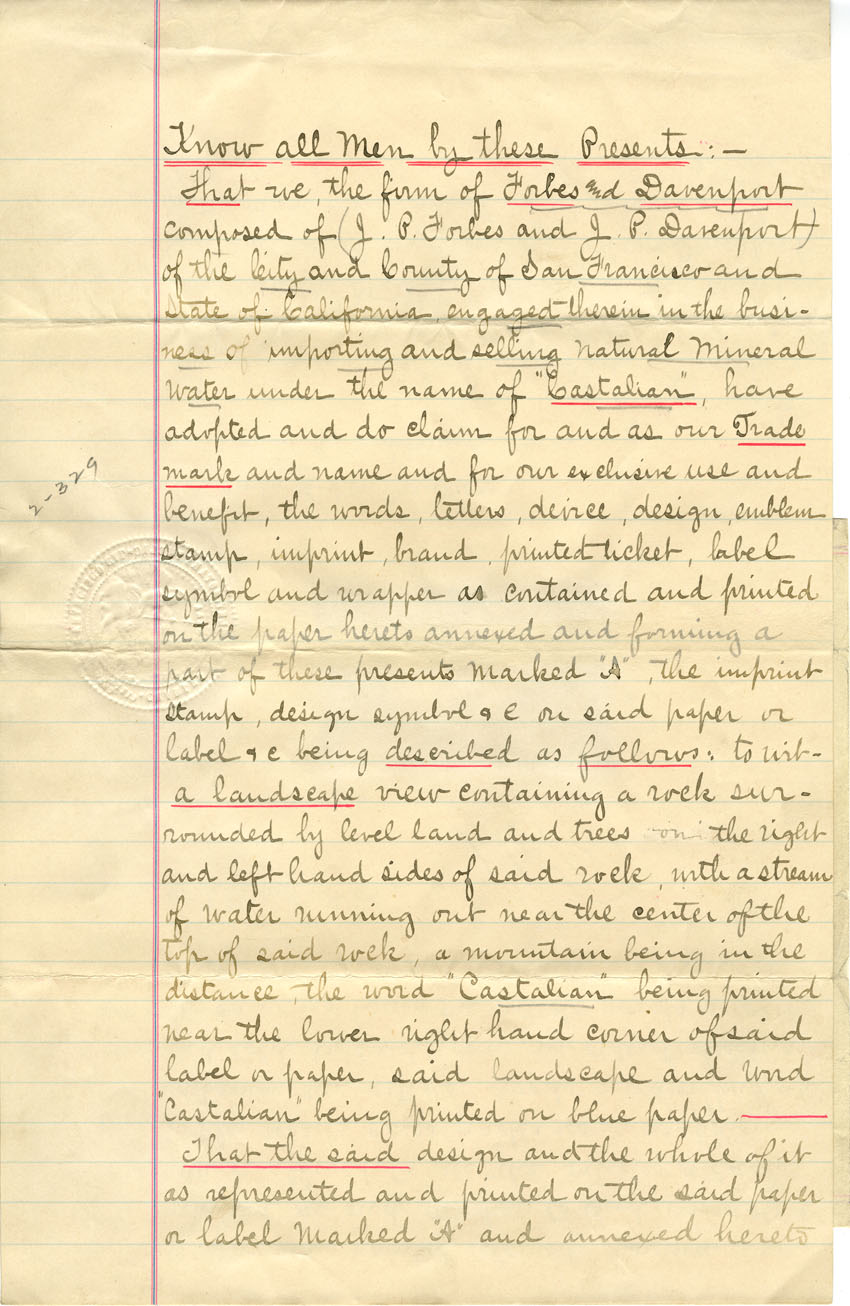 Know all Men by these Presents:—
That we, the firm of Forbes and Davenport
composed of (J. P. Forbes and J. P. Davenport)
of the City and County of San Francisco and
State of California, engaged therein in the busi-
ness of importing and selling Natural Mineral
Water under the name of "Castalian", have
adopted and do claim for and as our Trade
mark and name and for our exclusive use and
benefit, the words, letters, device, design, emblem
stamp, imprint, brand, printed ticket, label
symbol and wrapper as contained and printed
on the paper hereto annexed and forming a
part of these presents Marked "A", the imprint
stamp, design symbol & c on said paper or
label & c being described as follows: to wit-
a landscape view containing a rock sur-
rounded by level land and trees on the right
and left hand sides of said rock, with a stream
of water running out near the center of the
top of said rock, a mountain being in the
distance, the word "Castalian" being printed
near the lower right hand corner of said
label or paper, said landscape and word
"Castalian" being printed on blue paper.
That the said design and the whole of it
as represented and printed on the said paper
or label Marked "A" and annexed hereto
2-329